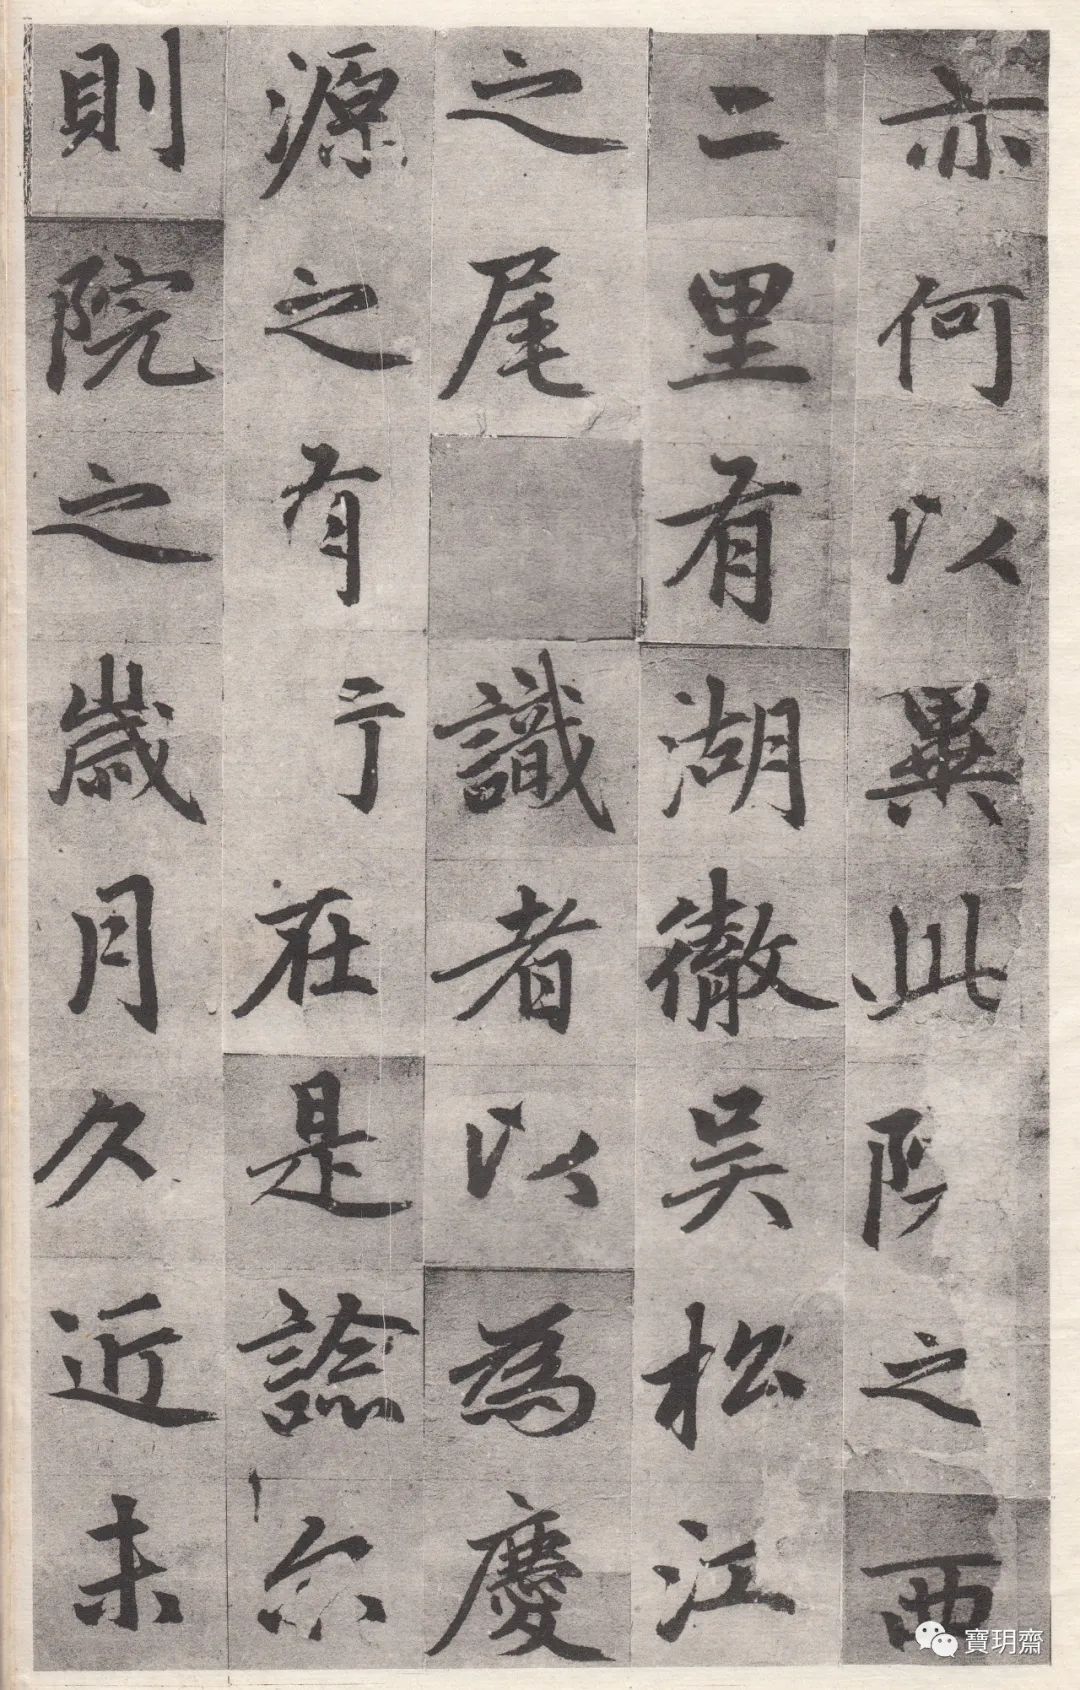 亦何以異此之西
二里有湖徹吳松江
之尾識者以為慶
源之有在是諗尓
則院之歲月久近未
寶玥齋